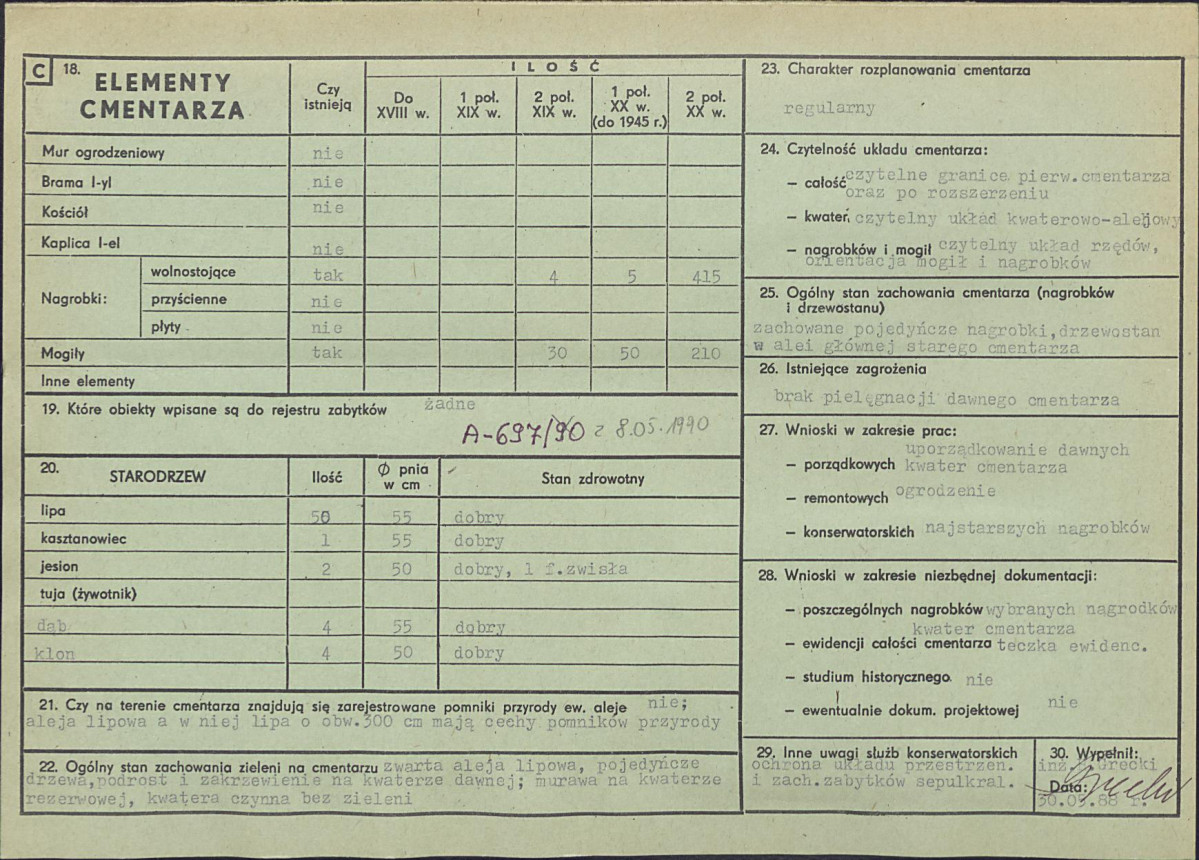 C 18. ELEMENTY CMENTARZA
Czy istnieją
ILOŚĆ
Do XVIII w.
1 poł. XIX w.
2 poł. XIX w.
1 poł. XX w. (do 1945 r.)
2 poł. XX w.
Mur ogrodzeniowy nie
Brama I-yl nie
Kościół nie
Kaplica I-el nie
Nagrobki: wolnostojące tak 4 5 415
przyścienne nie
płyty nie
Mogiły tak 30 50 210
Inne elementy
19. Które obiekty wpisane są do rejestru zabytków żadne
A-697/90 z 8.05.1990
20. STARODRZEW Ilość Ø pnia w cm Stan zdrowotny
lipa 50 55 dobry
kasztanowiec 1 55 dobry
jesion 2 50 dobry, 1 f.zwisła
tuja (żywotnik)
dąb 4 55 dobry
klon 4 50 dobry
21. Czy na terenie cmentarza znajdują się zarejestrowane pomniki przyrody ew. aleje nie;
aleja lipowa a w niej lipa o obw.300 cm mają cechy pomników przyrody
22. Ogólny stan zachowania zieleni na cmentarzu zwarta aleja lipowa, pojedyńcze
drzewa,podrost i zakrzewienie na kwaterze dawnej; murawa na kwaterze
rezerwowej, kwatera czynna bez zieleni
23. Charakter rozplanowania cmentarza
regularny
24. Czytelność układu cmentarza:
– całość czytelne granice pierw.cmentarza
oraz po rozszerzeniu
– kwater, czytelny układ kwaterowo-alejowy
– nagrobków i mogił czytelny układ rzędów,
orientacja mogił i nagrobków
25. Ogólny stan zachowania cmentarza (nagrobków
i drzewostanu)
zachowane pojedyńcze nagrobki,drzewostan
w alei głównej starego cmentarza
26. Istniejące zagrożenia
brak pielęgnacji dawnego cmentarza
27. Wnioski w zakresie prac:
uporządkowanie dawnych
– porządkowych kwater cmentarza
– remontowych ogrodzenie
– konserwatorskich najstarszych nagrobków
28. Wnioski w zakresie niezbędnej dokumentacji:
– poszczególnych nagrobków wybranych nagrodków
kwater cmentarza
– ewidencji całości cmentarza teczka ewidenc.
– studium historycznego nie
– ewentualnie dokum. projektowej nie
29. Inne uwagi służb konserwatorskich
ochrona układu przestrzen.
i zach.zabytków sepulkral.
30. Wypełnił:
Data: